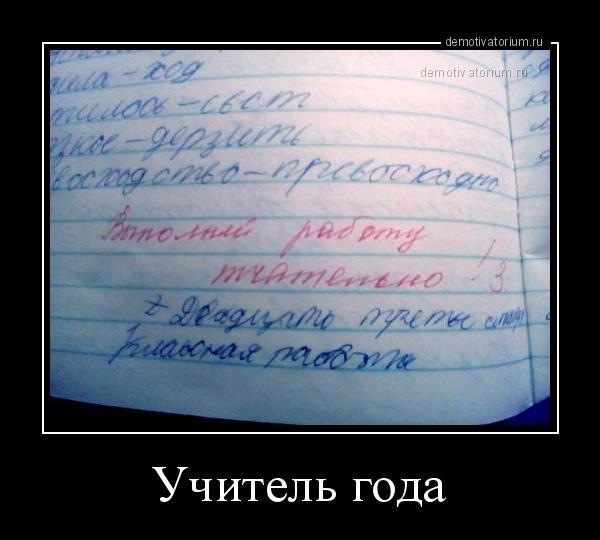 demotivatorium.ru
demotivatorium.ru
ила - ход
тилось - съест
зкое - дерзить
восходство - превосходно
Выполняй работу
тчательно! 3.
Двадцать третье
Классная работа
Учитель года